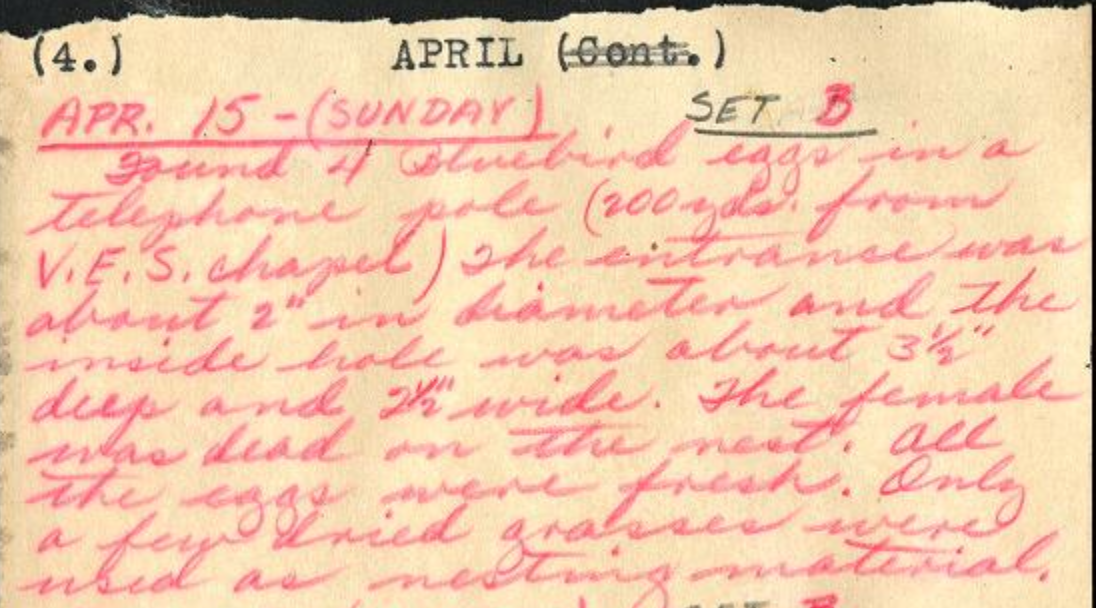 (4.) APRIL (Cont.)
APR. 15 - (SUNDAY) SET B
Found 4 Bluebird eggs in a
telephone pole (200 yds. from
V.E.S. chapel) The entrance was
about 2" in diameter and the
inside hole was about 3½"
deep and 2½" wide. The female
was dead on the nest. All
the eggs were fresh. Only
a few dried grasses were
used as nesting material.